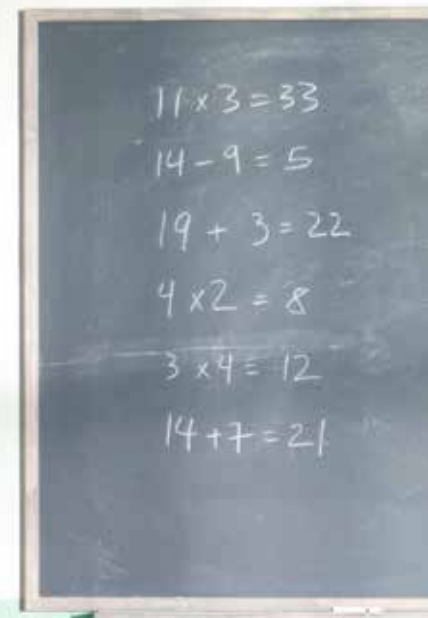 11 x 3 = 33
14 - 9 = 5
19 + 3 = 22
4 x 2 = 8
3 x 4 = 12
14 + 7 = 21